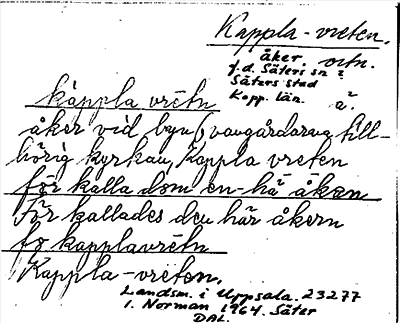 Kappla-vreten.
åker
f.d. Säters sn
Säters stad
Kopp. län.
kappla vretn
åker vid byn, till-
hörig kyrkan, Kappla vreten
för kalla dom en-hä åkan
För kallades den här åkern
fo kapplavretn
Kappla-vreten.
Landsm. i Uppsala. 23277
I. Norman 1964. Säter
DAL.